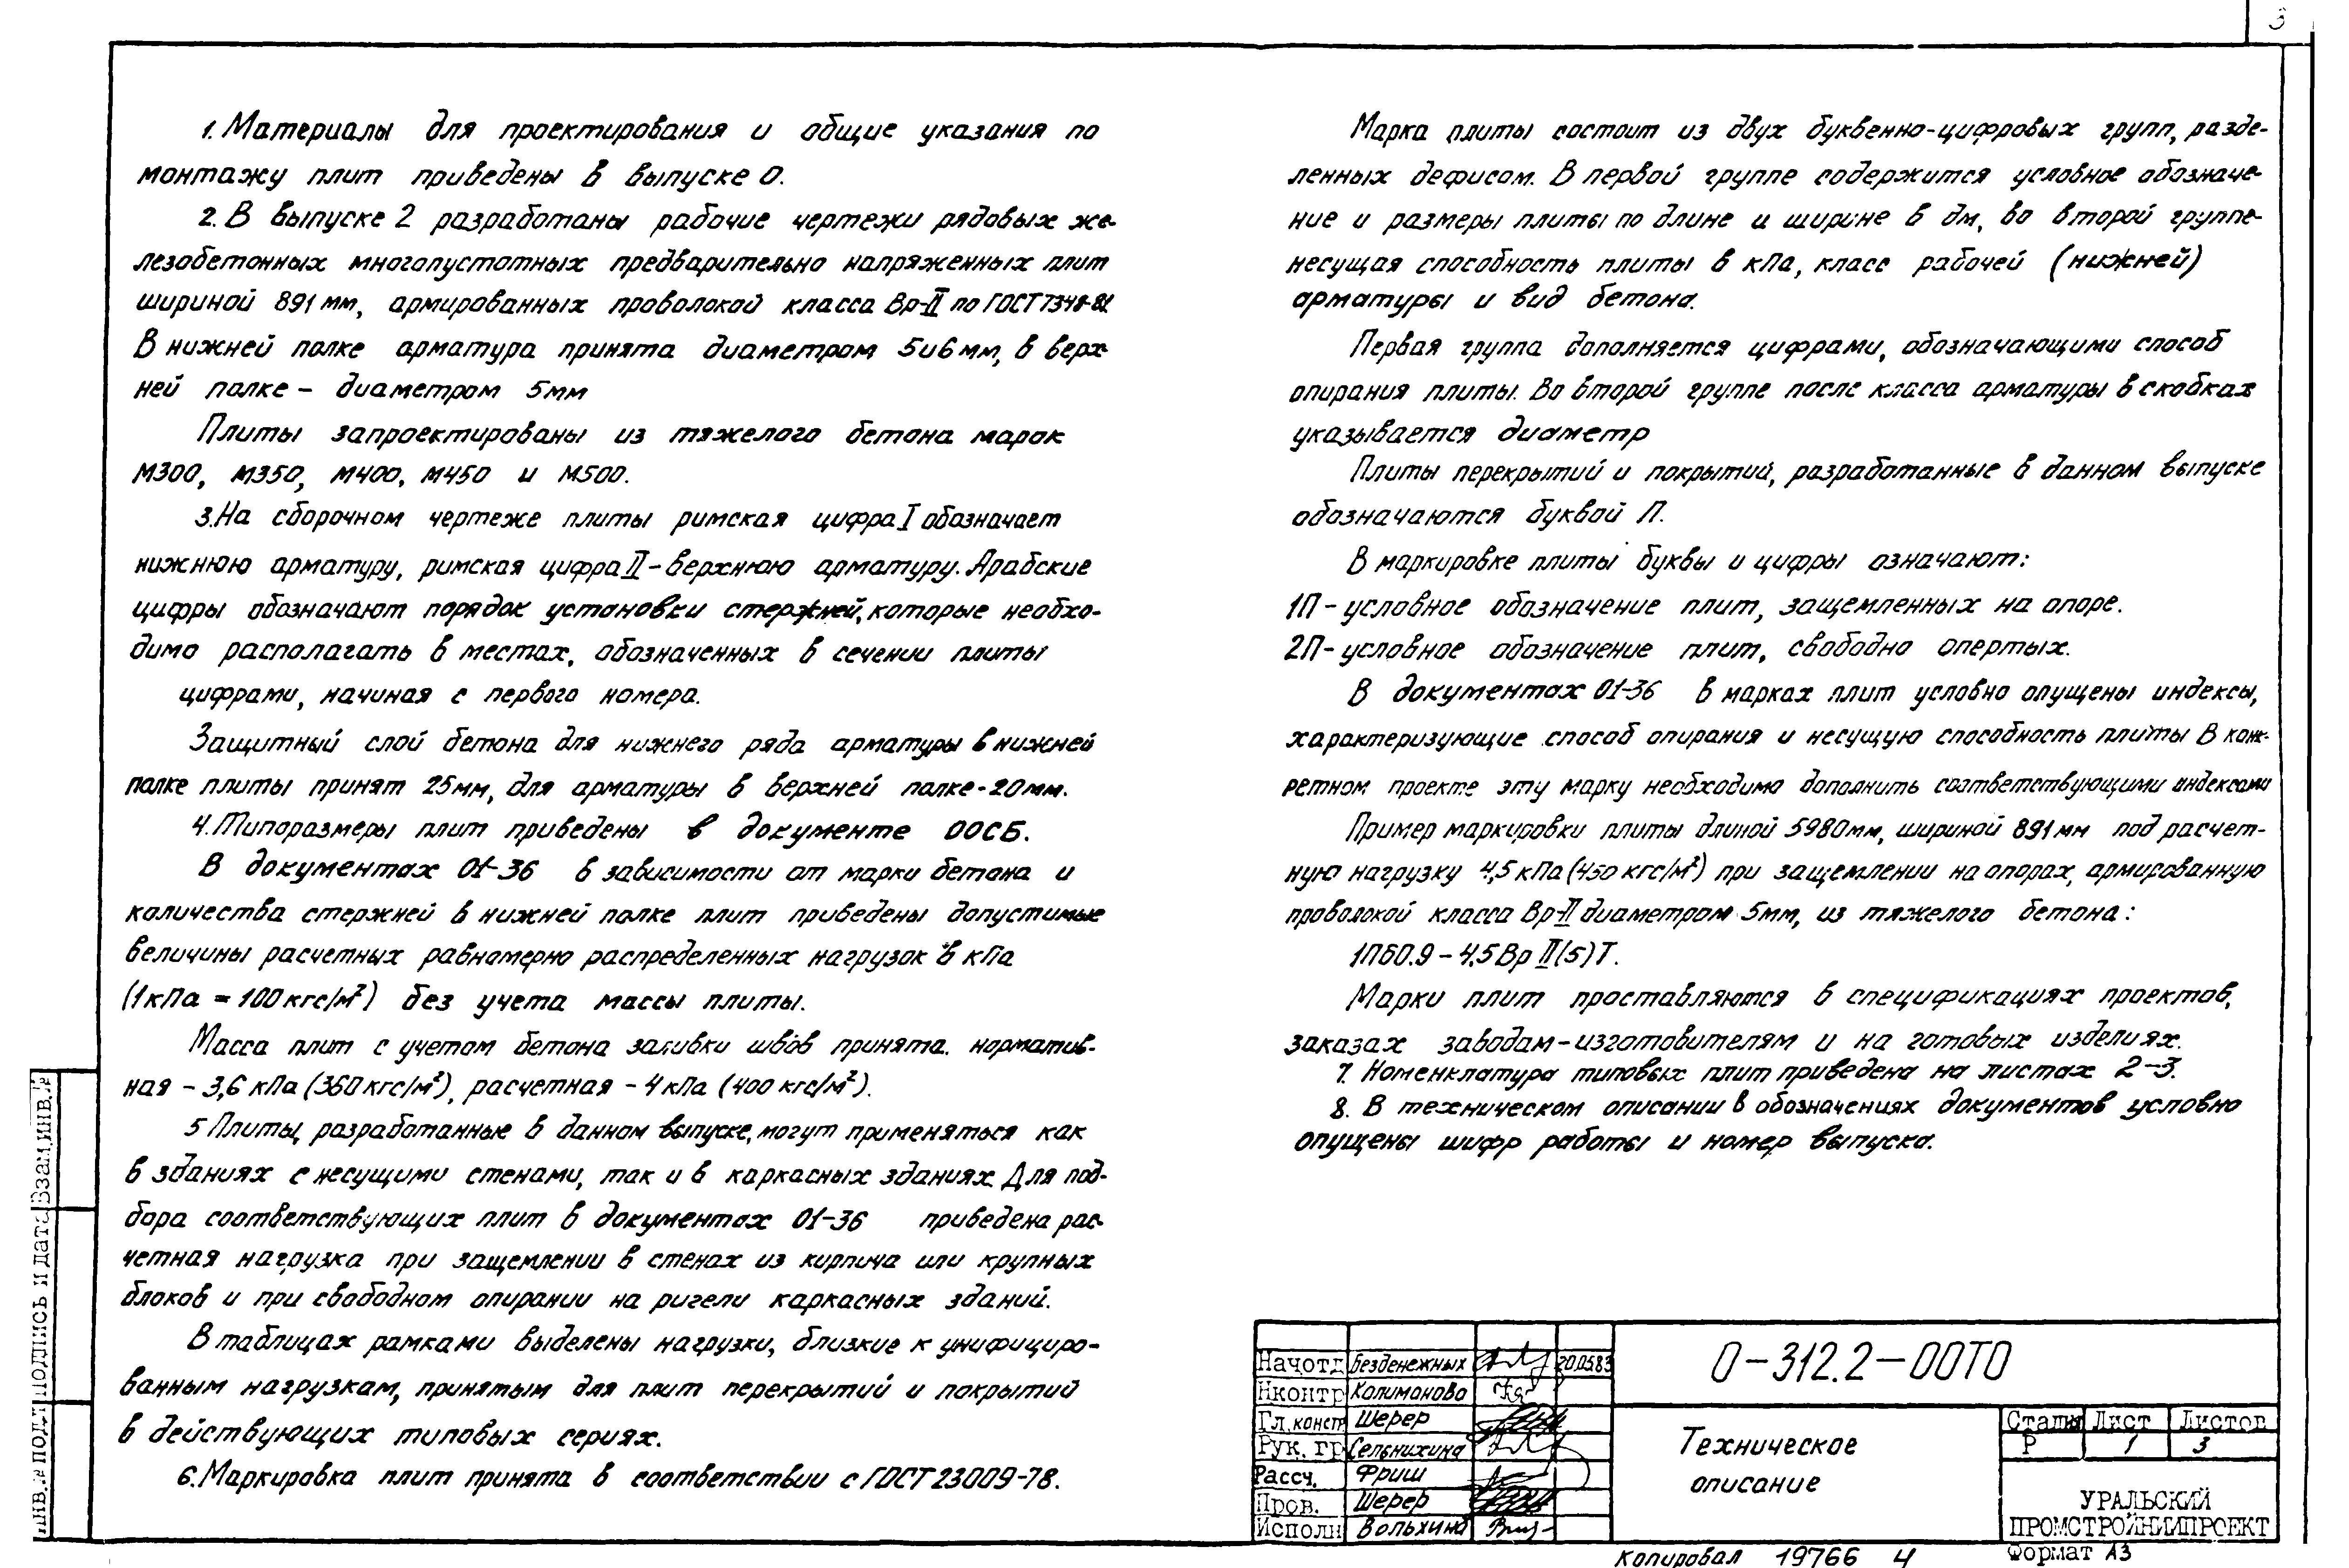 3
1. Материалы для проектирования и общие указания по
монтажу плит приведены в выпуске 0.
2. В выпуске 2 разработаны рабочие чертежи рядовых же-
лезобетонных многопустотных предварительно напряженных плит
шириной 891 мм, армированных проволокой класса Вр-II по ГОСТ 7348-81
В нижней полке арматура принята диаметром 5 и 6 мм, в верх-
ней полке – диаметром 5мм
Плиты запроектированы из тяжелого бетона марок
М300, М350, М400, М450 и М500.
3. На сборочном чертеже плиты римская цифра I обозначает
нижнюю арматуру, римская цифра II – верхнюю арматуру. Арабские
цифры обозначают порядок установки стержней, которые необхо-
димо располагать в местах, обозначенных в сечении плиты
цифрами, начиная с первого номера.
Защитный слой бетона для нижнего ряда арматуры в нижней
полке плиты принят 25мм, для арматуры в верхней полке - 20мм.
4. Типоразмеры плит приведены в документе 00СБ.
В документах 01-36 в зависимости от марки бетона и
количества стержней в нижней полке плит приведены допустимые
величины расчетных равномерно распределенных нагрузок в кПа
(1кПа = 100кгс/м²) без учета массы плиты.
Масса плит с учетом бетона заливки швов принята. норматив-
ная – 3,6 кПа (360кгс/м²), расчетная – 4кПа (400 кгс/м²).
5 Плиты, разработанные в данном выпуске, могут применяться как
в зданиях с несущими стенами, так и в каркасных зданиях. Для под-
бора соответствующих плит в документах 01-36 приведена рас-
четная нагрузка при защемлении в стенах из кирпича или крупных
блоков и при свободном опирании на ригели каркасных зданий.
В таблицах рамками выделены нагрузки, близкие к унифициро-
ванным нагрузкам, принятым для плит перекрытий и покрытий
в действующих типовых сериях.
6. Маркировка плит принята в соответствии с ГОСТ 23009-78.
Марка плиты состоит из двух буквенно-цифровых групп, разде-
ленных дефисом. В первой группе содержится условное обозначе-
ние и размеры плиты по длине и ширине в дм, во второй группе-
несущая способность плиты в кПа, класс рабочей (нижней)
арматуры и вид бетона.
Первая группа дополняется цифрами, обозначающими способ
опирания плиты. Во второй группе после класса арматуры в скобках
указывается диаметр
Плиты перекрытий и покрытий, разработанные в данном выпуске
обозначаются буквой П.
В маркировке плиты буквы и цифры означают:
1П – условное обозначение плит, защемленных на опоре.
2П – условное обозначение плит, свободно опертых.
В документах 01-36 в марках плит условно опущены индексы,
характеризующие способ опирания и несущую способность плиты В конк-
ретном проекте эту марку необходимо дополнить соответствующими индексами
Пример маркировки плиты длиной 5980мм, шириной 891мм под расчет-
ную нагрузку 4,5 кПа (450 кгс/м²) при защемлении на опорах, армированную
проволокой класса Вр-II диаметром 5мм, из тяжелого бетона:
1П60.9 – 4,5 Вр II (5) Т.
Марки плит проставляются в спецификациях проектов,
заказах заводам-изготовителям и на готовых изделиях.
7. Номенклатура типовых плит приведена на листах 2–3.
8. В техническом описании в обозначениях документов условно
опущены шифр работы и номер выпуска.
Взам.инв.№
Подпись и дата
Инв.№ подл
Нач отд Безденежных 20.05.83
Н контр Калиманова
Гл. констр Шерер
Рук. гр Сельнихина
Рассч. Фриш
Пров. Шерер
Исполн Вольхина
0-312.2-00ТО
Техническое
описание
Стадия Лист Листов
Р 1 3
УРАЛЬСКИЙ
ПРОМСТРОЙНИИПРОЕКТ
Копировал 19766 4
Формат А3